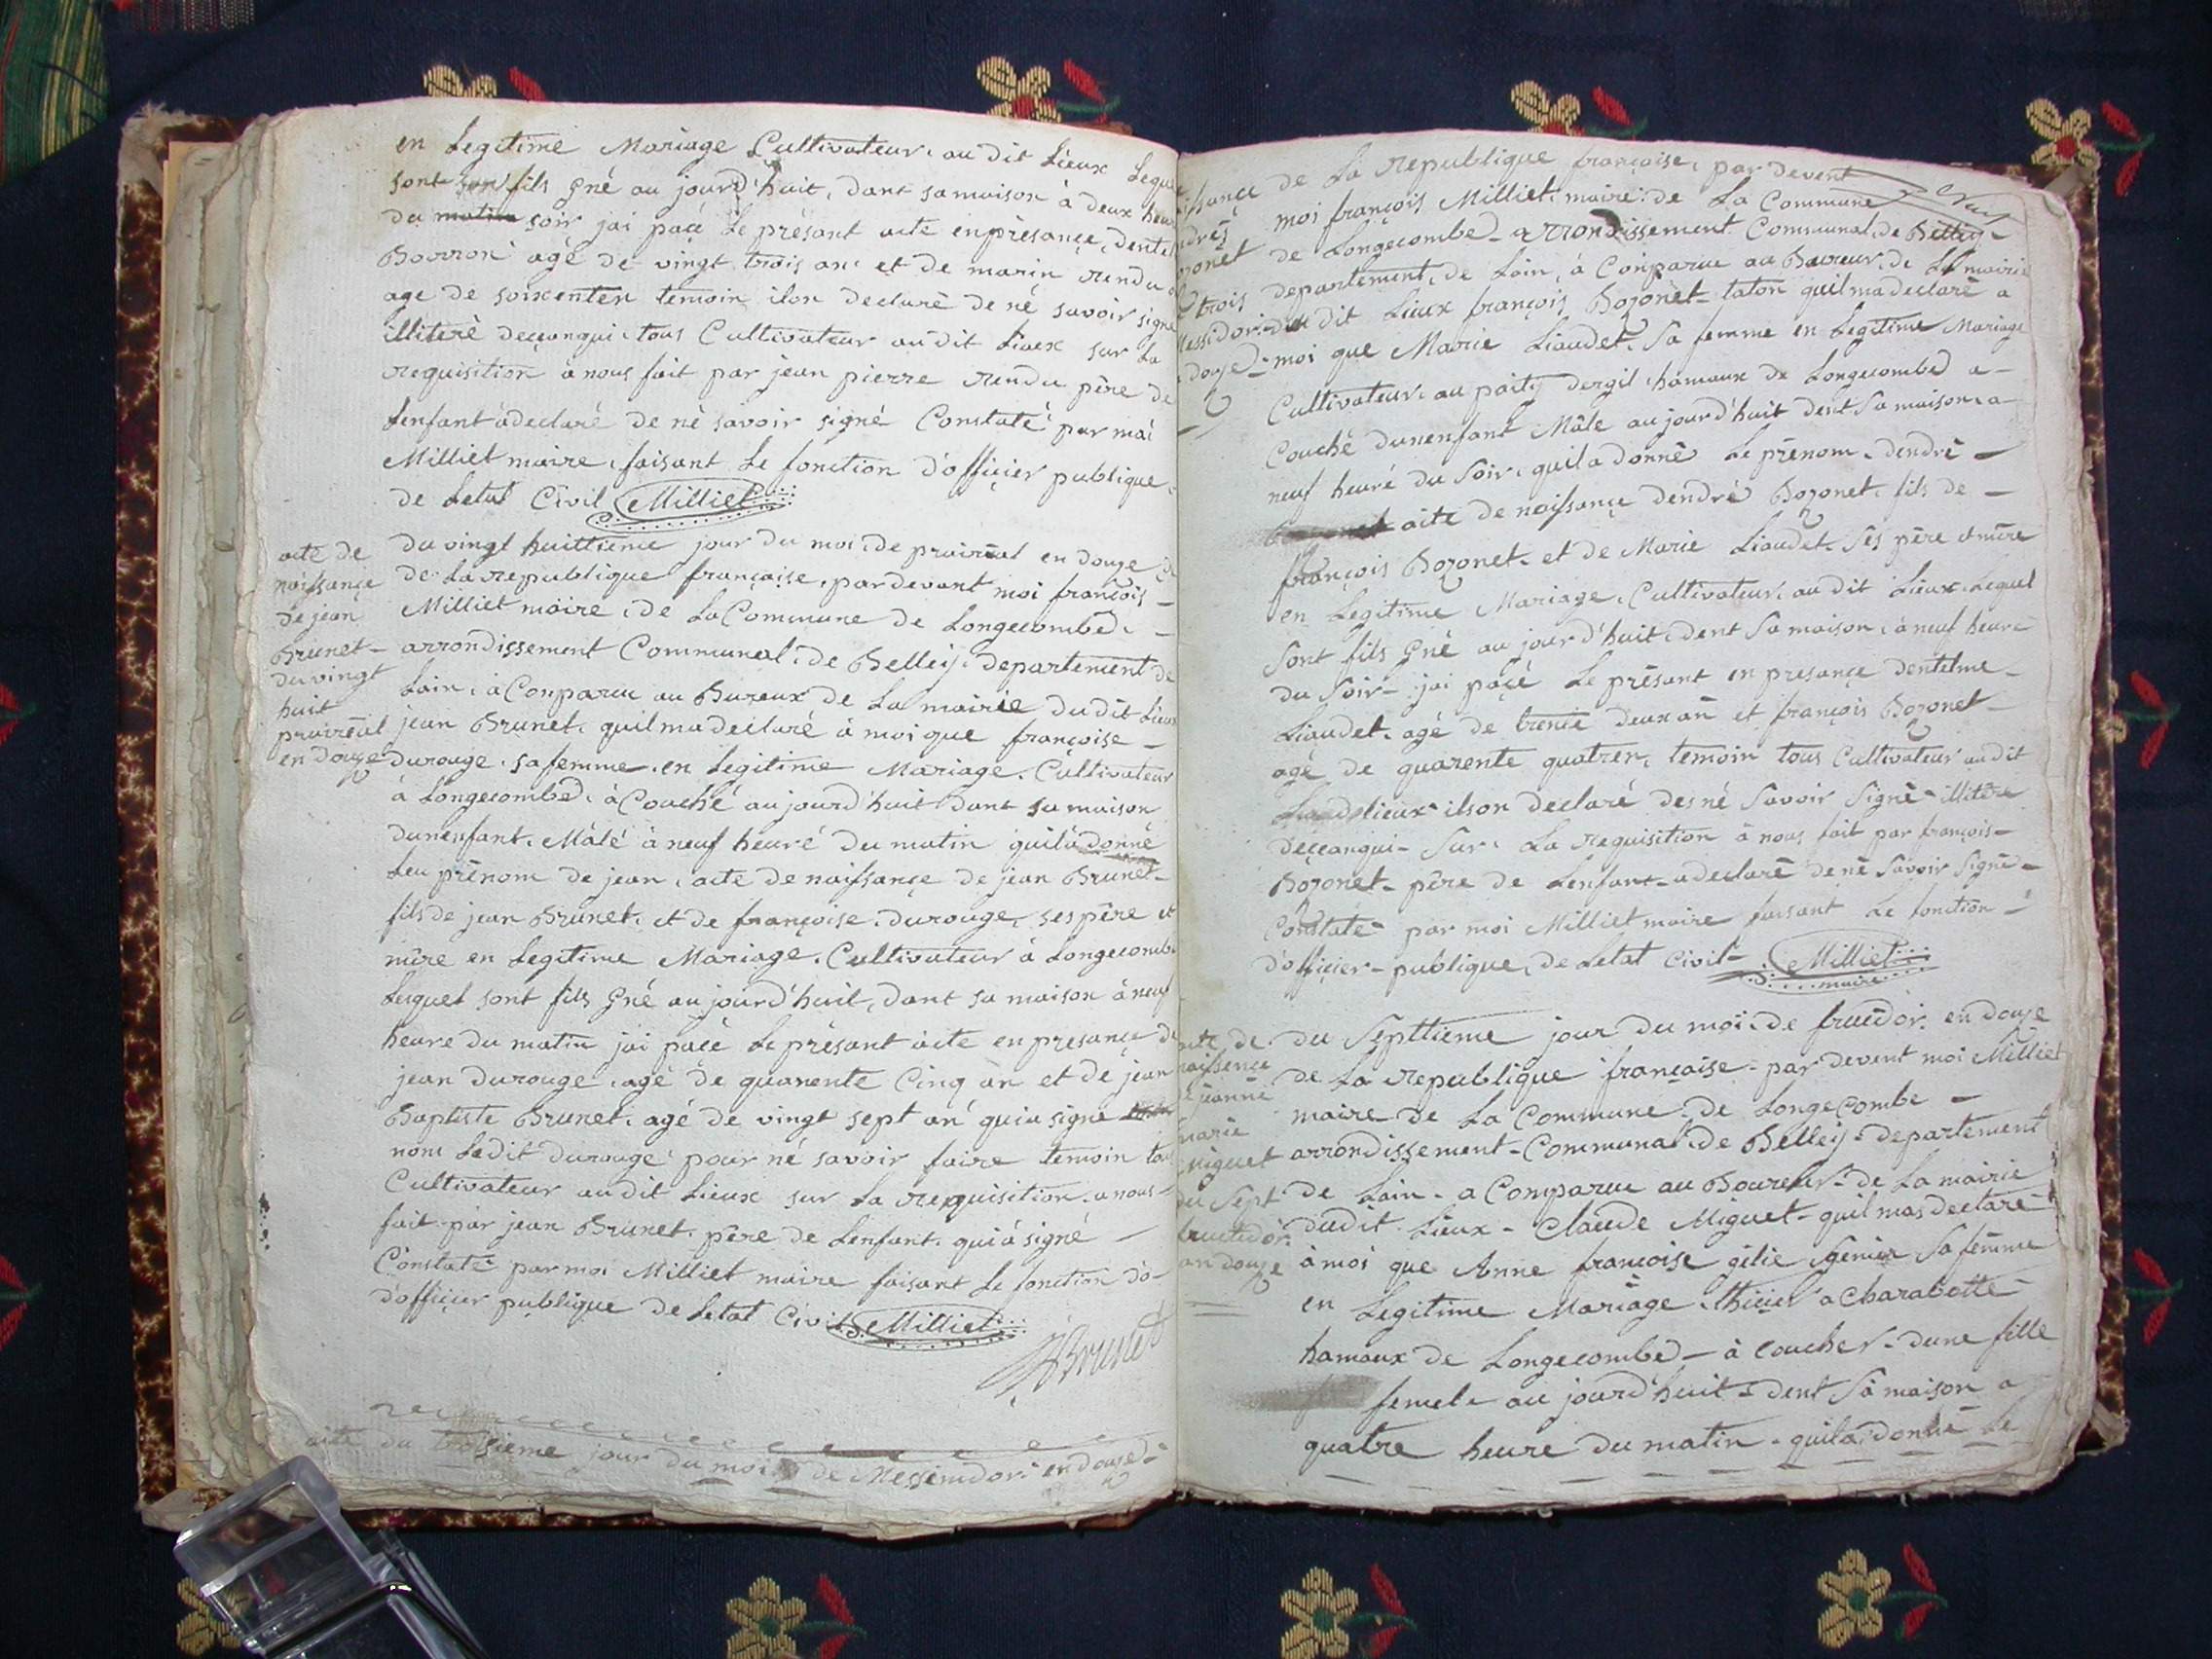 en Legitime Mariage Cultivateur au dit Lieux Lequel
sont fils Gné au jourd'huit, dant sa maison à deux heure
du soir jai pacé Le présant acte en présançe, dentel
Borron agé de vingt trois an et de marin rendu
age de soixenten temoin ilon declaré de né savoir signé
illiteré deçanqui, tous Cultivateur au dit Lieux sur La
requisition a nous fait par jean pierre rendu père de
Lenfant adeclaré de né savoir signé Constaté par moi
Milliet maire, faisant Le fonction d'offiçier publique
de Letat Civil Milliet
acte de
naissançe
de jean
Brunet
du vingt
huit
prairéal
en douze
du vingt huittieme jour du moi de prairéal en douze
de La republique française, par devant moi françois
Milliet maire de La Commune de Longecombe
arrondissement Communal de Belley departement de
Lain, à Conparue au Bureux de La mairie du dit Lieux
jean Brunet, quil ma declaré à moi que françoise
durouge sa femme en Legitime Mariage Cultivateur
à Longecombe, à Couché au jourd'huit dant sa maison
dunenfant Mâlé à neuf heuré du matin quila donné
Leu prénom de jean, acte de naissançe de jean Brunet
fils de jean Brunet et de françoise durouge, ses père et
mère en Legitime Mariage Cultivateur à Longecombe
Lequel sont fils Gné au jourd'huit, dant sa maison à neuf
heure du matin jai pacé Le présant acte en presançe de
jean durouge agé de quarente Cinq an et de jean
Baptiste Brunet agé de vingt sept an quia signe
nom Ledit durouge pour né savoir faire temoin tous
Cultivateur au dit Lieux sur La requisition a nous
fait par jean Brunet père de Lenfant qui à signé
Constaté par moi Milliet maire faisant Le fonction do
d'offiçier publique de Letat Civil Milliet
Brunet
acte du troisieme jour du moi de Messemdor en douze
de La republique françoise, par devent
moi françois Milliet maire de La Commune
de Longecombe arrondissement Communal de Belley
departement de Lain, à Conparue au Boureur de La mairie
du dit Lieux françois Bozonet taton quil ma declaré a
moi que Marie Liaudet Sa femme en Legitime Mariage
trois
douze
Cultivateur au paity dergil hamaux de Longecombe a
Couché dunenfant Mâle au jourd'huit dent Sa maison a
neuf heuré du Soir quila donné Le prénom dendré
acte de naissançe dendré Bozonet fils de
françois Bozonet et de Marie Liaudet Sés père et mère
en Legitime Mariage Cultivateur au dit Lieux Lequel
Sont fils Gné au jourd'huit dent Sa maison à neuf heure
du Soir jai paçé Le présant en presançe dentelme
Liaudet agé de trente deux an et françois Bozonet
agé de quarente quatren temoin tous Cultivateur au dit
Lieux ilson declaré desné Savoir Signé illitère
deçeanqui Sur La requisition à nous fait par françois
Bozonet père de Lenfant adeclaré de né Savoir Signé
Constaté par moi Milliet maire faisant Le fonction
d'offiçier publique, de Letat Civil Milliet
maire
acte de
naissençe
jeanne
marie
Miguet
du Sept
fructidor
an douze
du Septtieme jour du moi de fruédor en douze
de La republique françaisse par devent moi Milliet
maire de La Commune de Longecombe
arrondissement Communal de Belley departement
de Lain a Comparue au Boureur de La mairie
dudit Lieux Claude Miguet quil mas declaré
à moi que Anne françoise gélie Sa femme
en Legitime Mariage a Charabotte
hamaux de Longecombe à Coucher dune fille
femele au jourd'huit dent Sa maison a
quatre heure du matin quila donné Le